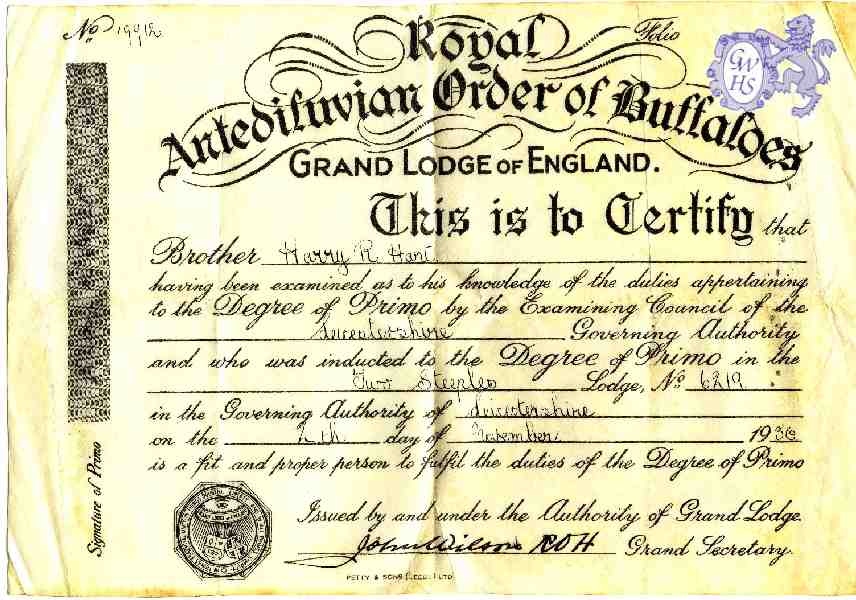 No 19912
Folio
GWHS
Royal
Antediluvian Order of Buffaloes
GRAND LODGE OF ENGLAND.
This is to Certify that
Brother Harry R. Hant
having been examined as to his knowledge of the duties appertaining
to the Degree of Primo by the Examining Council of the
Leicestershire Governing Authority
and who was inducted to the Degree of Primo in the
Two Steeples Lodge, No 6219
in the Governing Authority of Leicestershire
on the day of November 1936
is a fit and proper person to fulfil the duties of the Degree of Primo
Issued by and under the Authority of Grand Lodge.
John Wilson ROH Grand Secretary.
Signature of Primo
PETTY & SONS (LEEDS) LTD